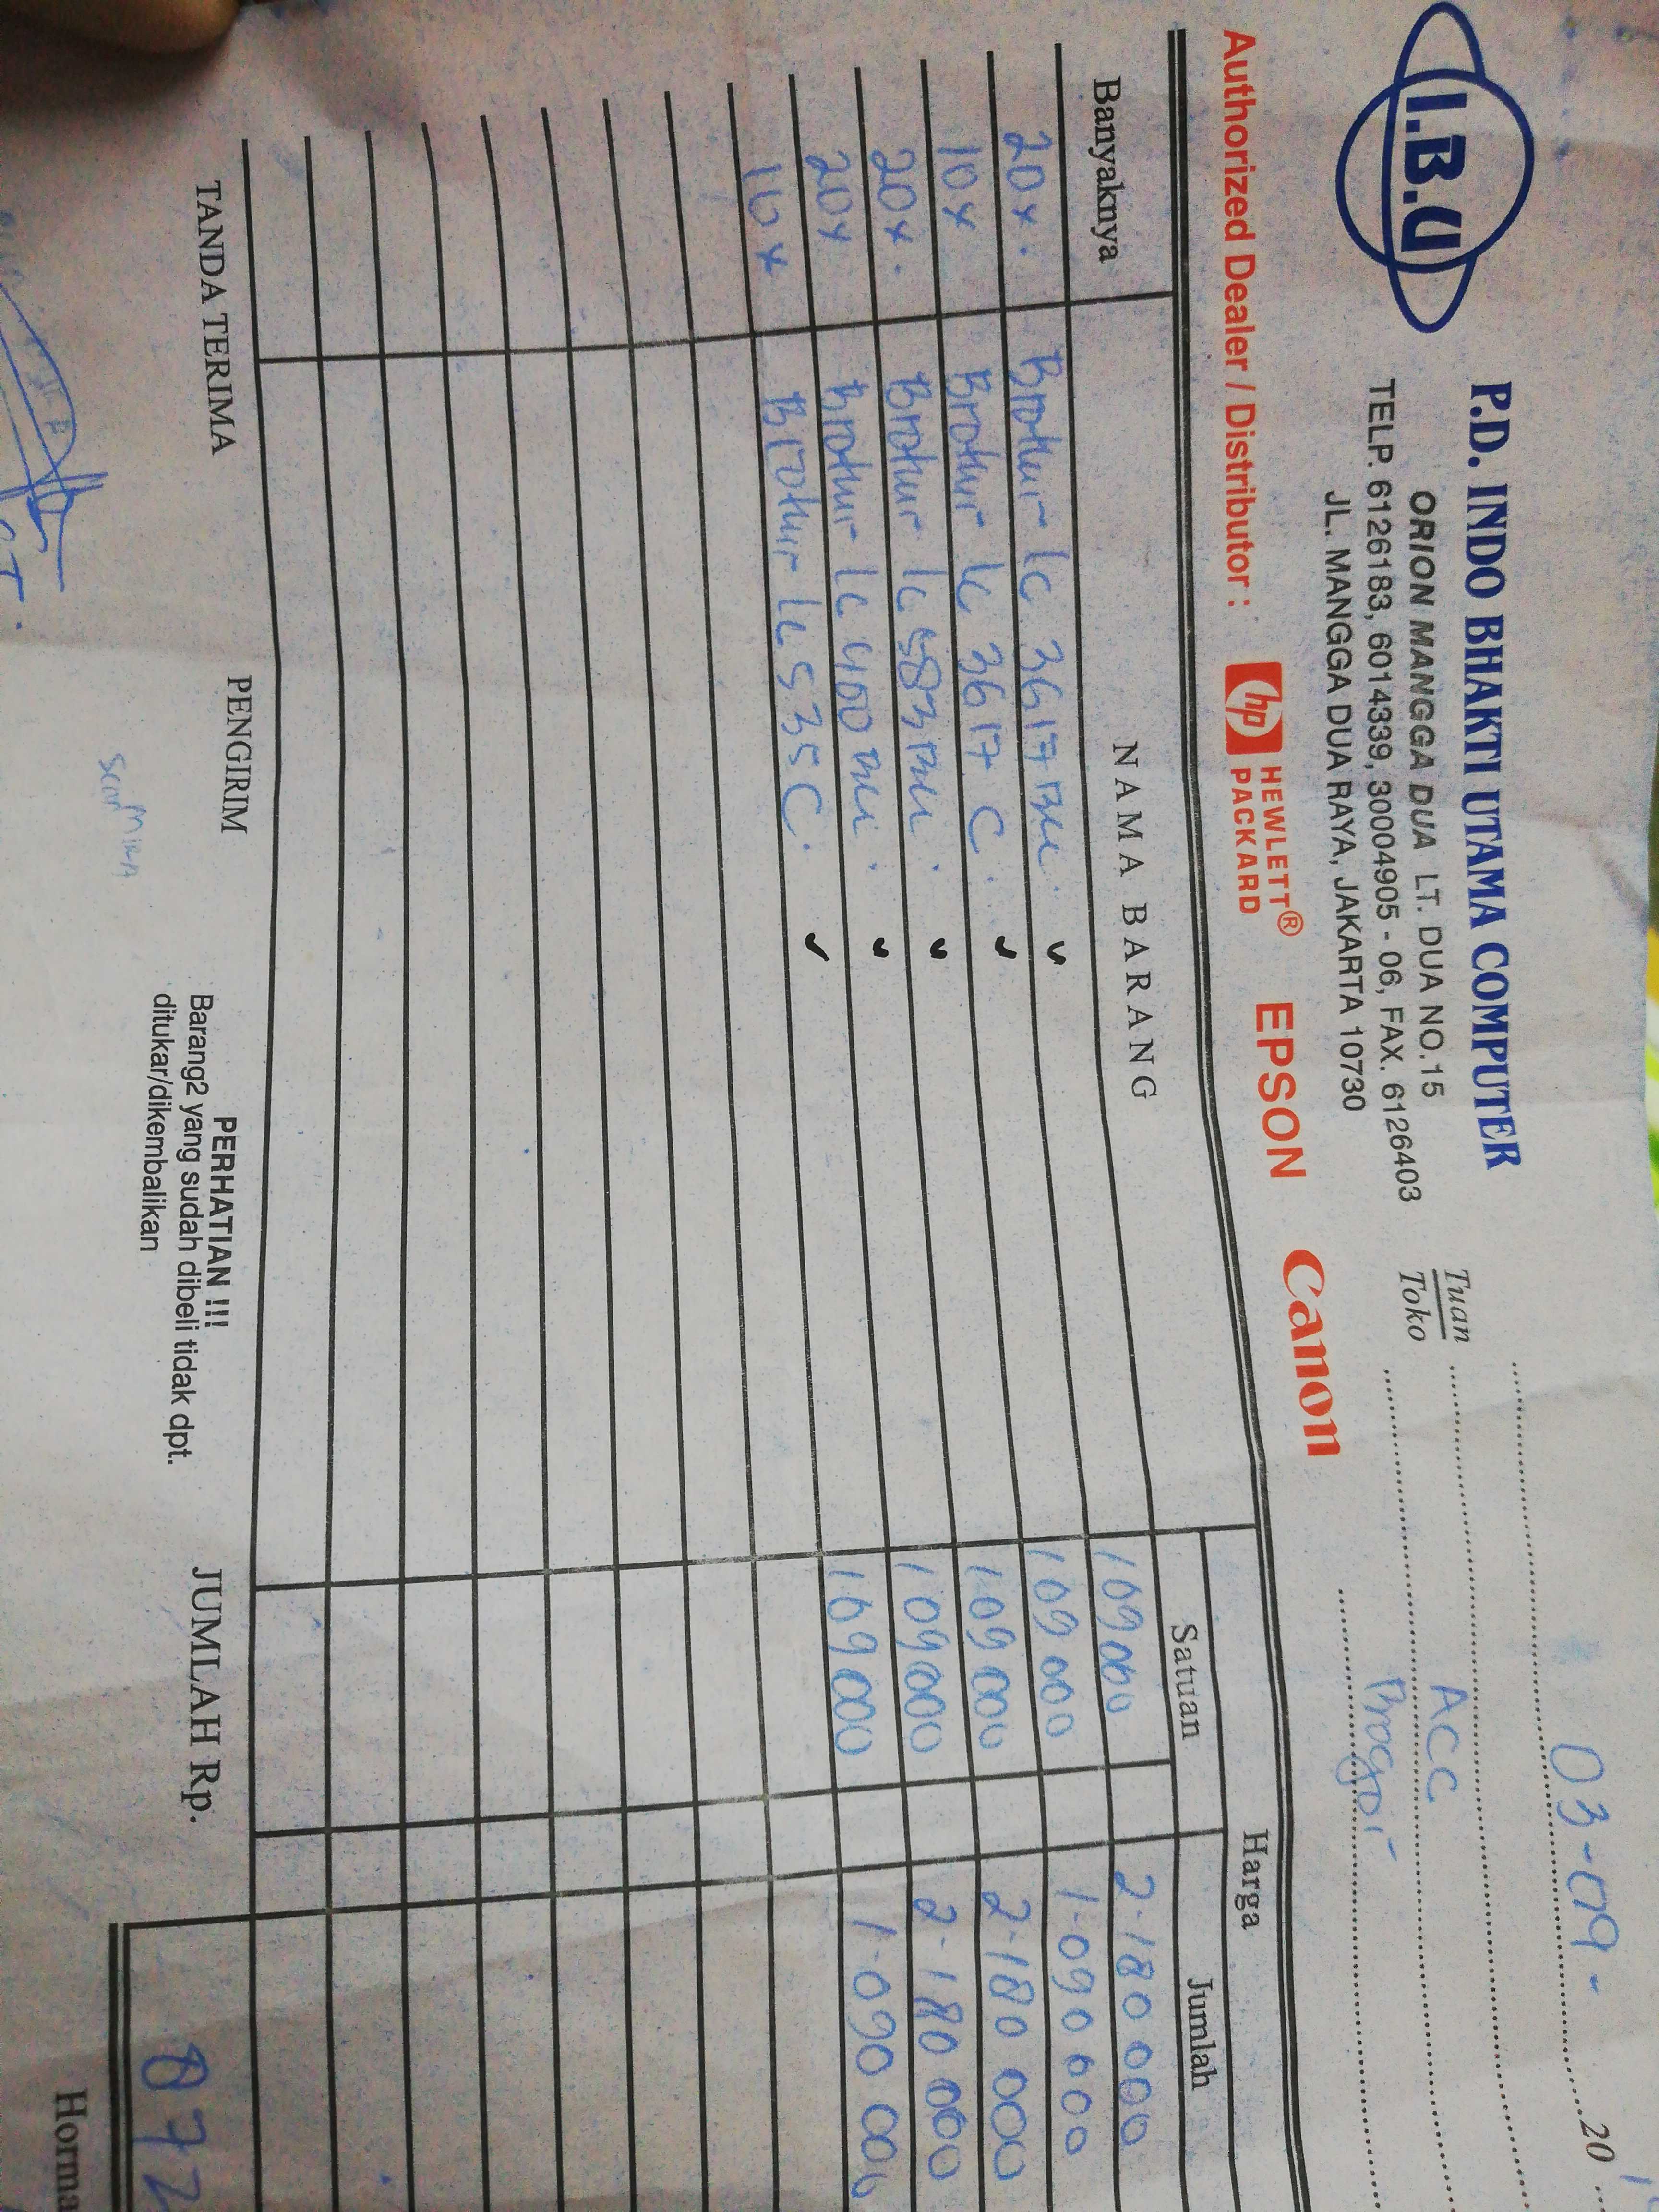 I.B.U
P.D. INDO BHAKTI UTAMA COMPUTER
ORION MANGGA DUA LT. DUA NO. 15
TELP. 6126183, 6014339, 30004905 - 06, FAX. 6126403
JL. MANGGA DUA RAYA, JAKARTA 10730
03-09- 20
Tuan
Toko
Acc
Progor
Authorized Dealer / Distributor : hp HEWLETT® PACKARD EPSON Canon
Banyaknya NAMA BARANG Harga
Satuan Jumlah
20x. Brother Lc 3617 109000 2.180 000
10x Brother Lc 3617 C. 109 000 1.090 000
20x. Brother Lc 583 109 000 2.180 000
20x Brother Lc 400 109000 2.180 000
10x Brother Lc 535 C. 109000 1.090 000
TANDA TERIMA PENGIRIM
PERHATIAN !!!
Barang2 yang sudah dibeli tidak dpt.
ditukar/dikembalikan
JUMLAH Rp. 872
Horma